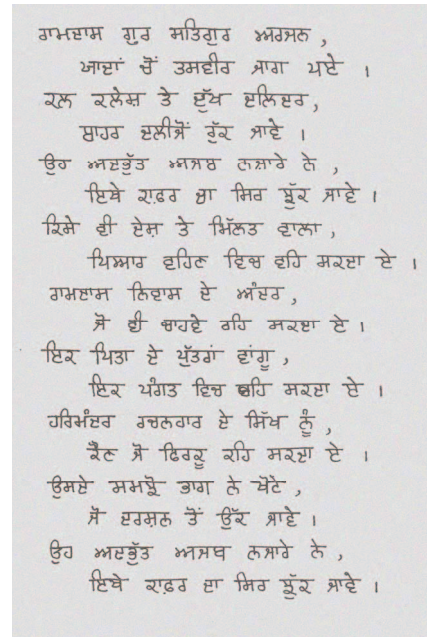 ਰਾਮਦਾਸ ਗੁਰ ਸਤਿਗੁਰ ਅਰਜਨ ,
ਯਾਦਾਂ ਚੋਂ ਤਸਵੀਰ ਜਾਗ ਪਏ ।
ਕਲ ਕਲੇਸ਼ ਤੇ ਦੁੱਖ ਦਲਿਦਰ,
ਬਾਹਰ ਦਲੀਜੋਂ ਰੁੱਕ ਜਾਵੇ ।
ਉਹ ਅਦਭੁੱਤ ਅਜਬ ਨਜ਼ਾਰੇ ਨੇ ,
ਇਥੇ ਕਾਫ਼ਰ ਦਾ ਸਿਰ ਝੁੱਕ ਜਾਵੇ ।
ਕਿਸੇ ਵੀ ਦੇਸ਼ ਤੇ ਮਿੱਲਤ ਵਾਲਾ ,
ਪਿਆਰ ਵਹਿਣ ਵਿਚ ਵਹਿ ਸਕਦਾ ਏ ।
ਰਾਮਦਾਸ ਨਿਵਾਸ ਦੇ ਅੰਦਰ ,
ਜੋ ਵੀ ਚਾਹਵੇ ਰਹਿ ਸਕਦਾ ਏ ।
ਇਕ ਪਿਤਾ ਦੇ ਪੁੱਤਰਾਂ ਵਾਂਗੂ ,
ਇਕ ਪੰਗਤ ਵਿਚ ਬਹਿ ਸਕਦਾ ਏ ।
ਹਰਿਮੰਦਰ ਰਚਨਹਾਰ ਦੇ ਸਿੱਖ ਨੂੰ ,
ਕੌਣ ਜੋ ਫਿਰਕੂ ਕਹਿ ਸਕਦਾ ਏ ।
ਉਸਦੇ ਸਮਝੋ ਭਾਗ ਨੇ ਖੋਟੇ ,
ਜੋ ਦਰਸ਼ਨ ਤੋਂ ਉੱਕ ਜਾਵੇ ।
ਉਹ ਅਦਭੁੱਤ ਅਜਬ ਨਜ਼ਾਰੇ ਨੇ ,
ਇਥੇ ਕਾਫ਼ਰ ਦਾ ਸਿਰ ਝੁੱਕ ਜਾਵੇ ।